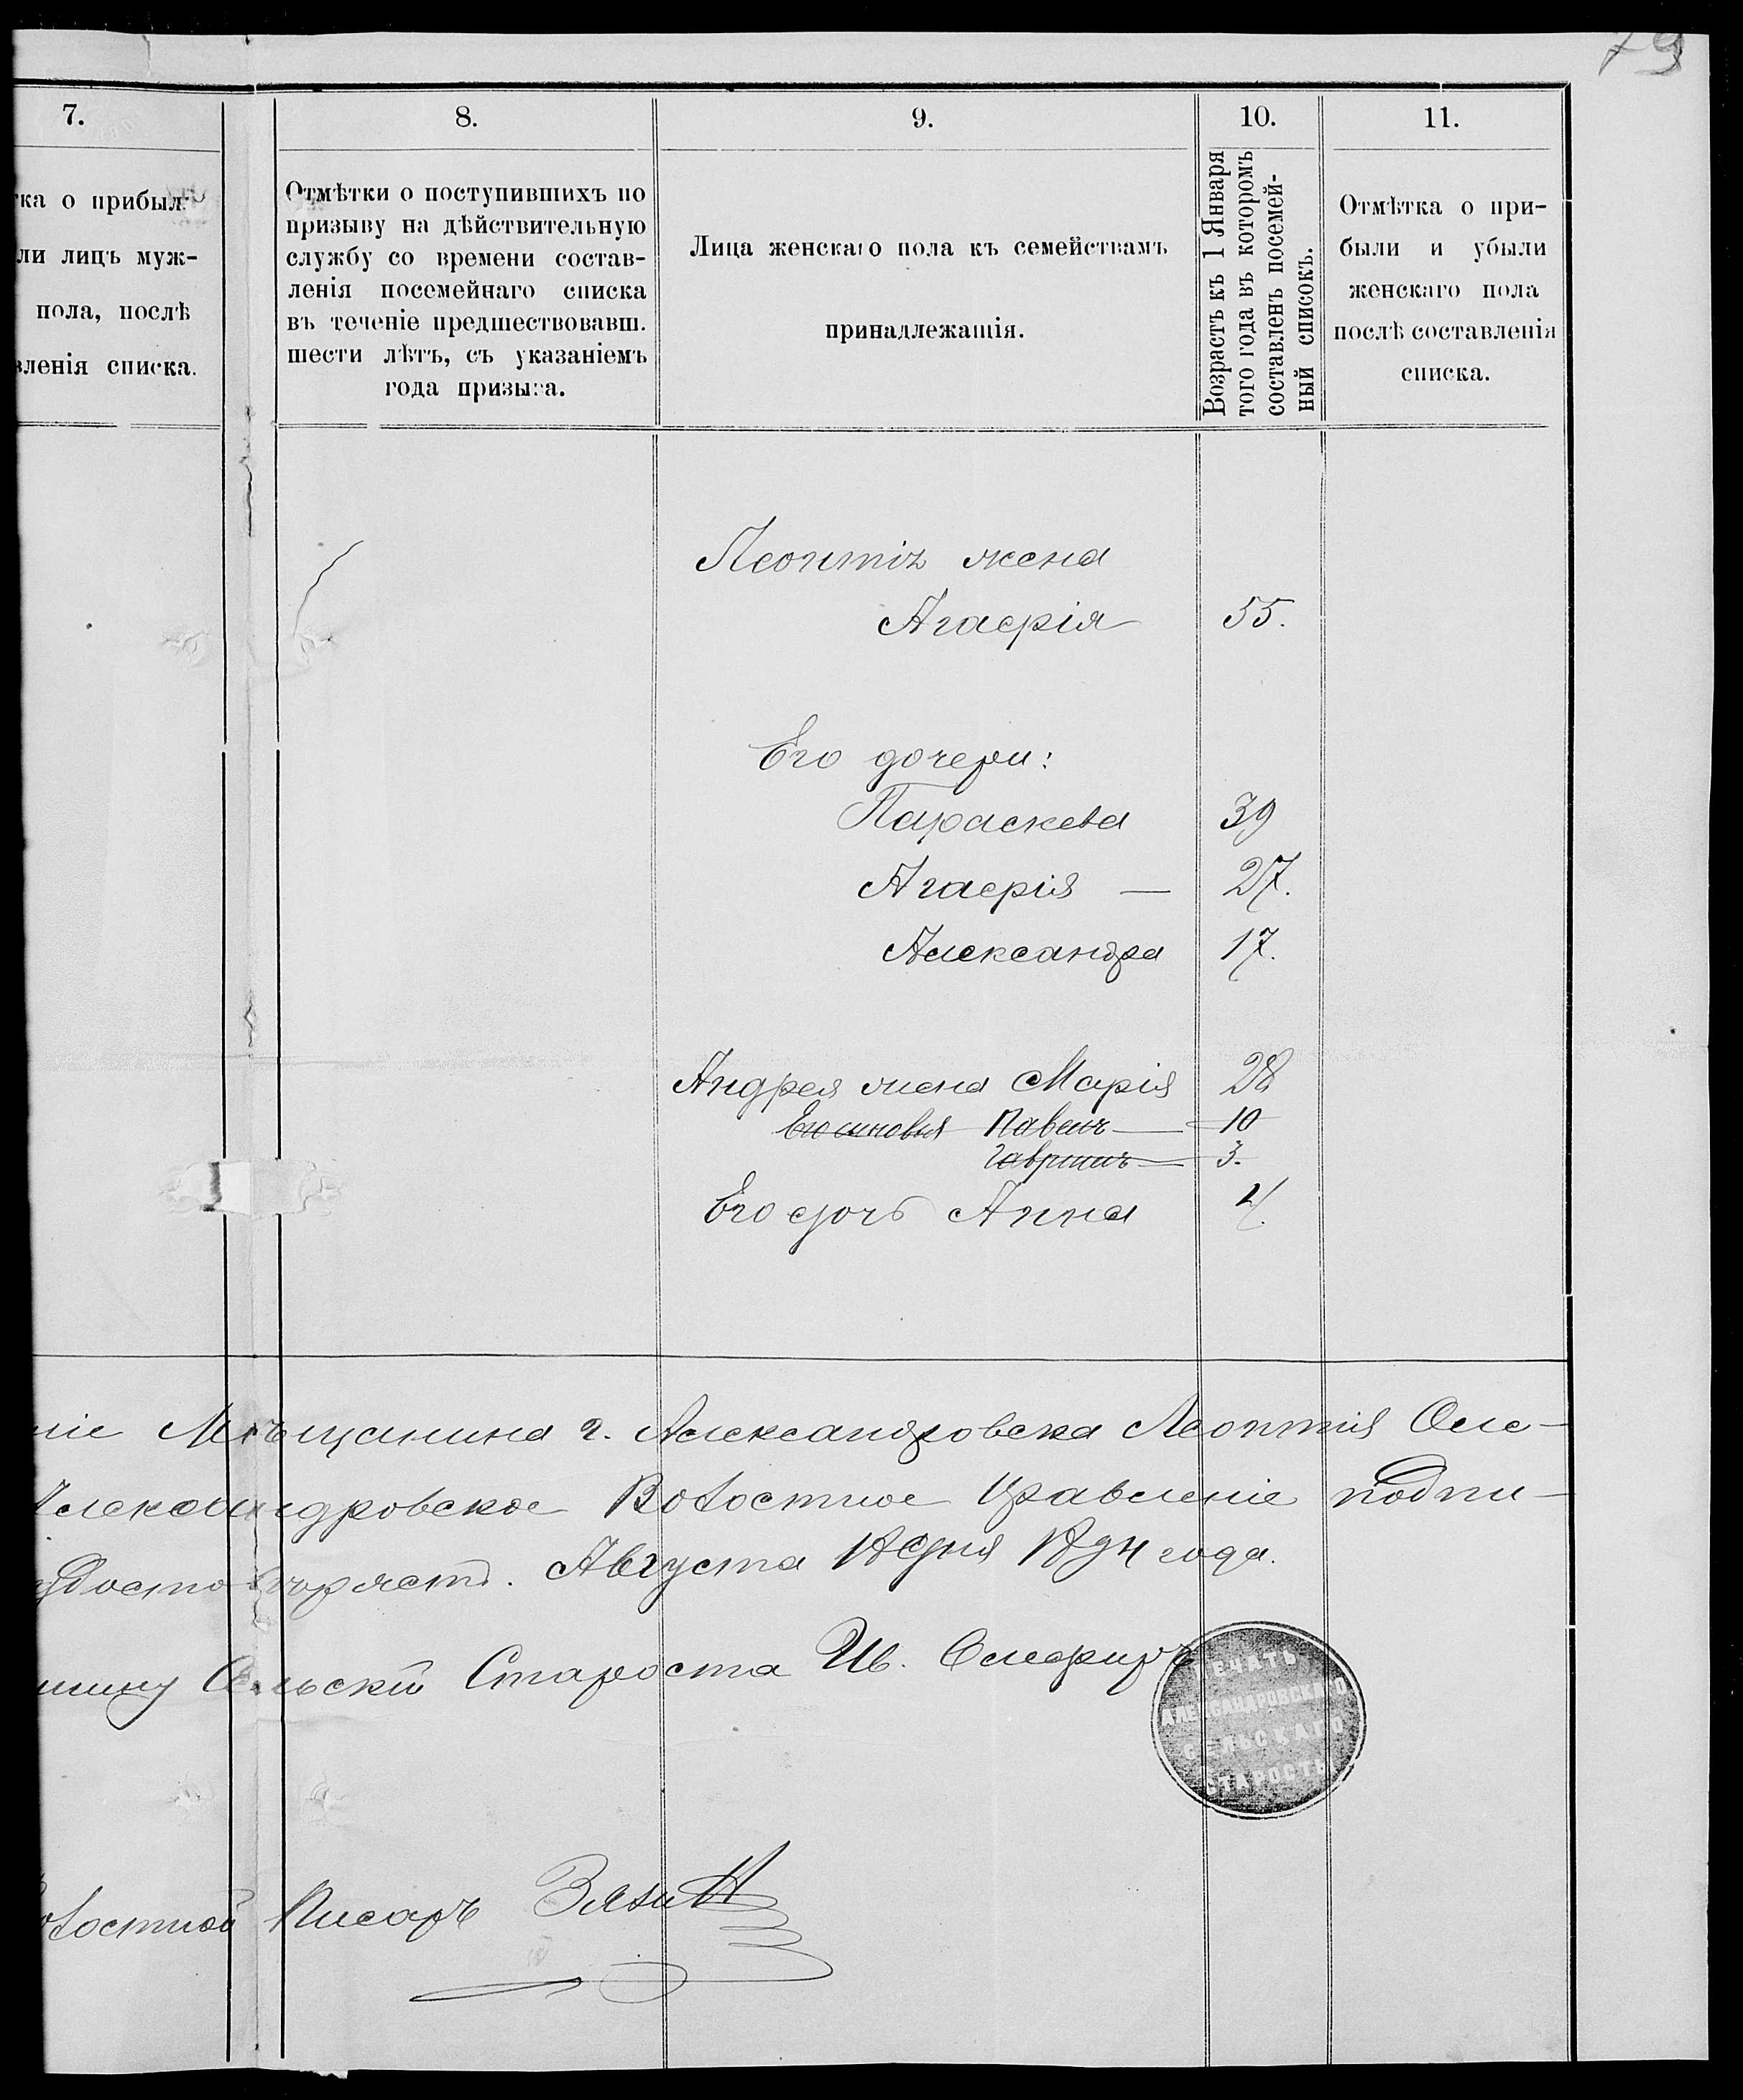 79
7.
8.
9.
10.
11.
тка о прибыли
ли лицъ муж-
пола, послѣ
вленія списка.
Отмѣтки о поступившихъ по
призыву на дѣйствительную
службу со времени состав-
ленія посемейнаго списка
въ теченіе предшествовавш.
шести лѣтъ, съ указаніемъ
года призыва.
Лица женскаго пола къ семействамъ
принадлежащія.
Возрастъ къ 1 Января
того года въ которомъ
составленъ посемей-
ный списокъ.
Отмѣтка о при-
были и убыли
женскаго пола
послѣ составленія
списка.
жена
55.
Его дочери:
Параскева 39
27.
Александра 17.
Андрея жена Марія 28
Его сыновья Павелъ 10
Гавриилъ 3.
Его дочь Анна 4.
ніе Мѣщанина г. Александровска Леонтія Оле-
Александровское Волостное Правленіе подпи-
удостовѣряетъ. Августа дня 1894 года.
Сельскій Староста Ив.
ПЕЧАТЬ
АЛЕКСАНДРОВСКАГО
СЕЛЬСКАГО
СТАРОСТЫ
Волостной Писарь